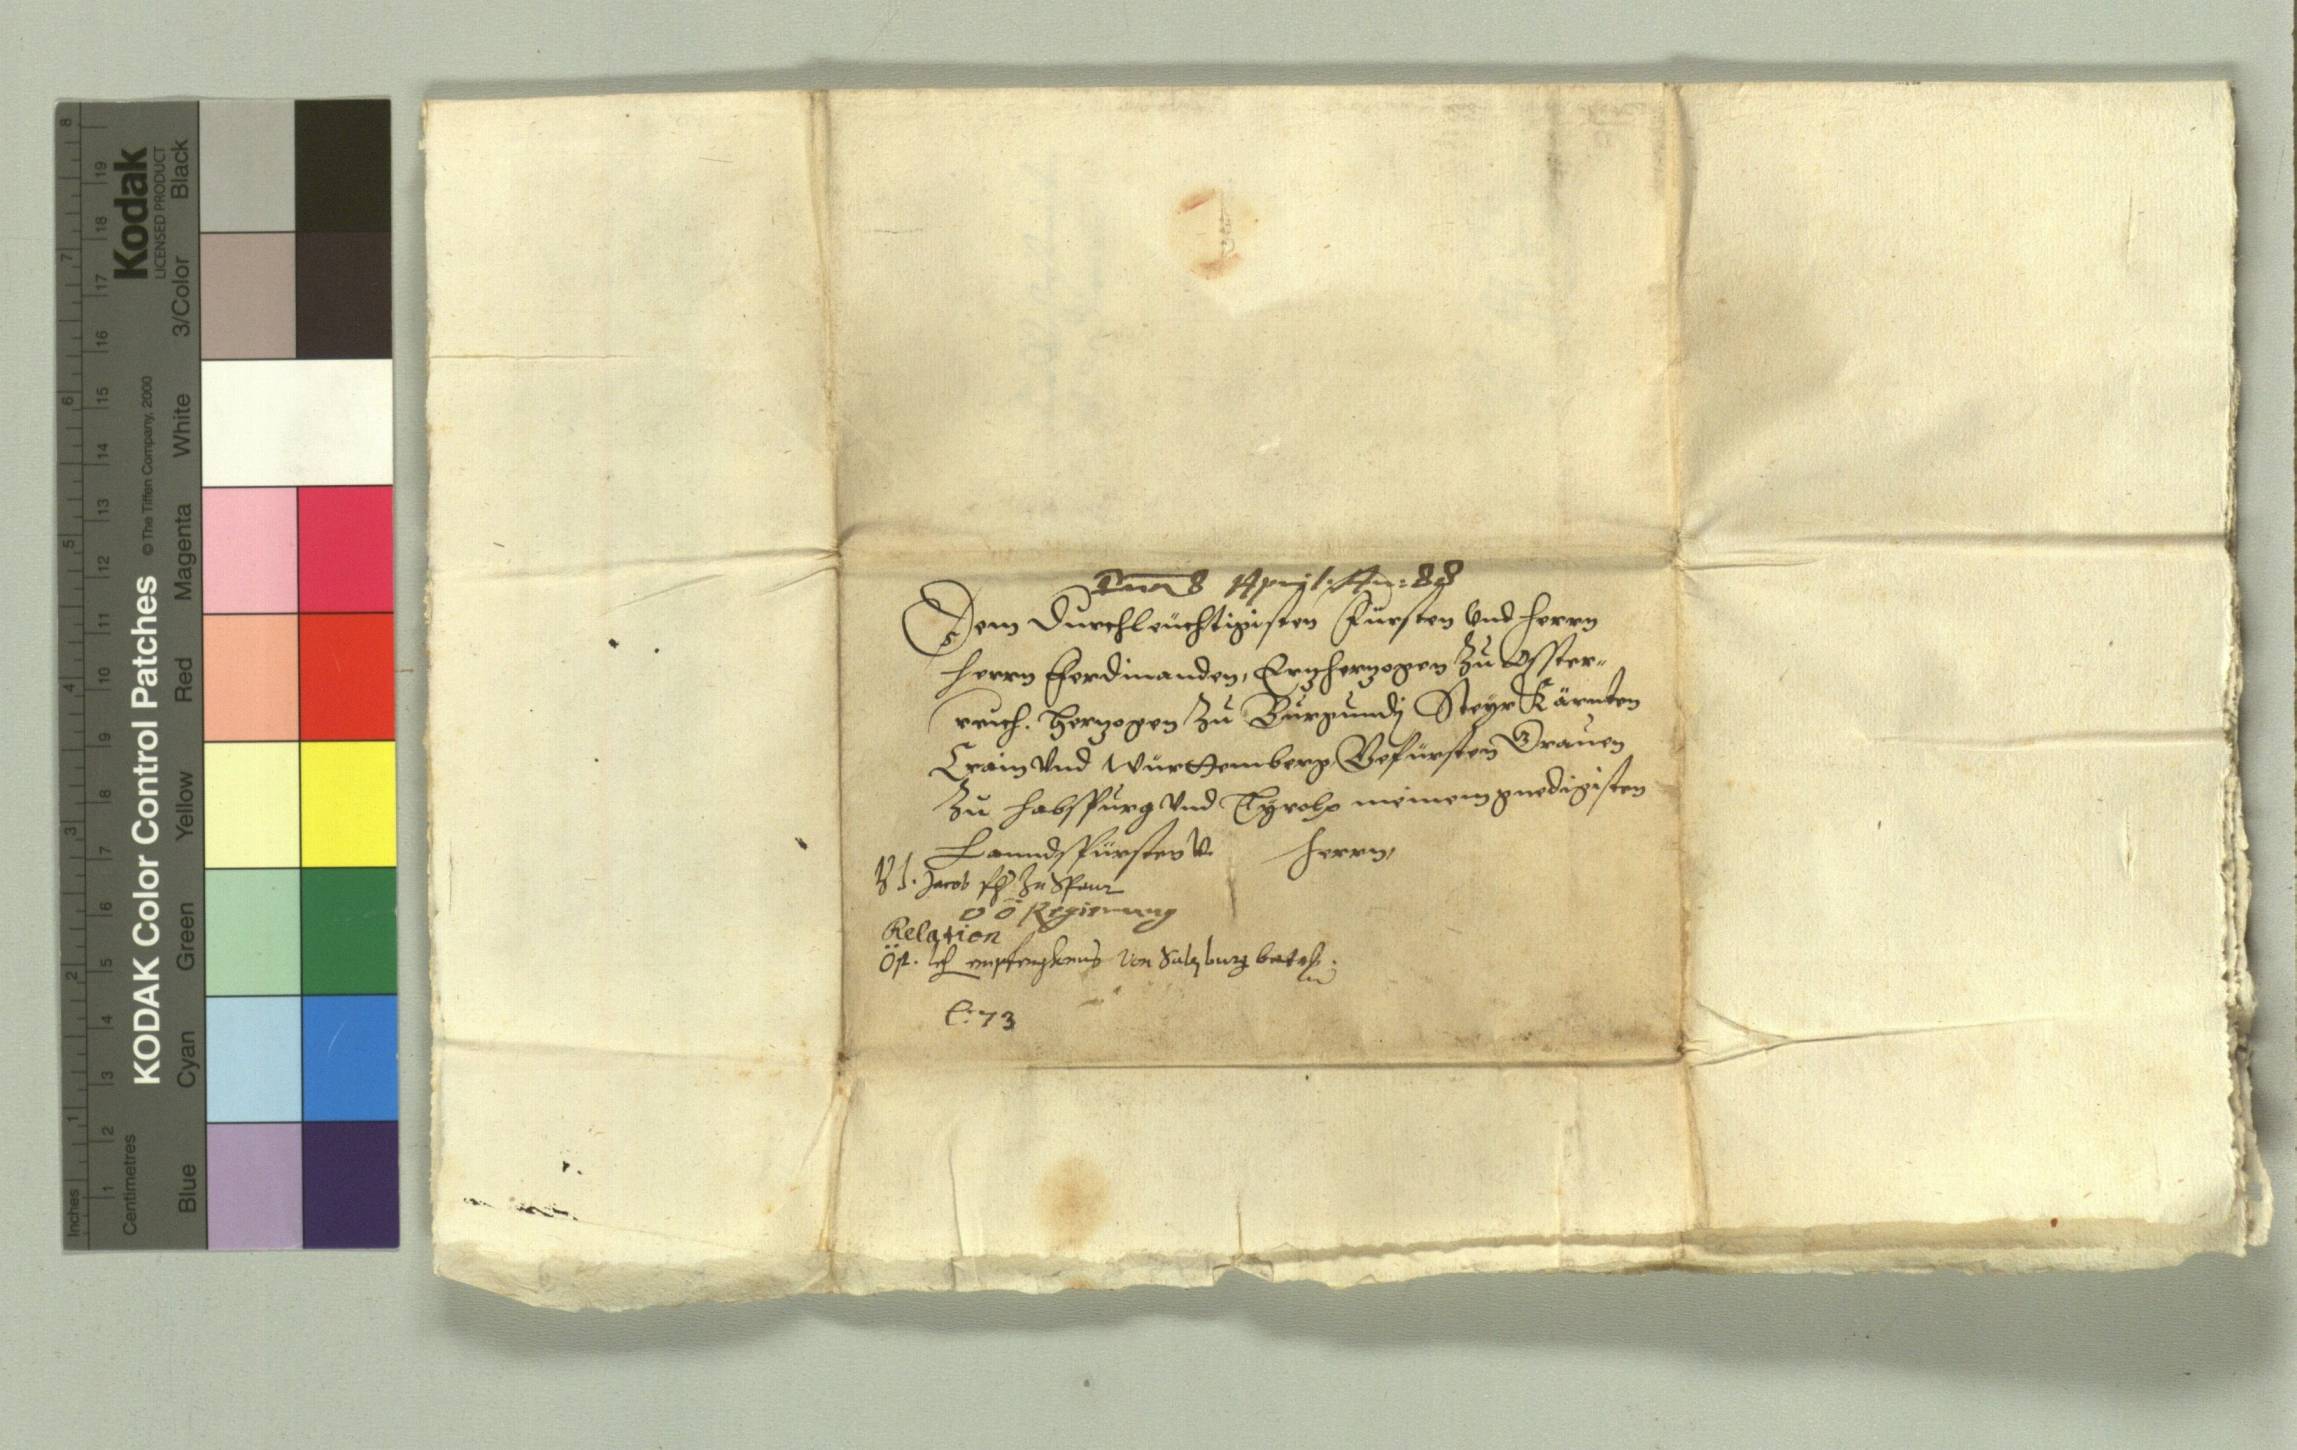 8 April: An: 88
Dem Durchleüchtigisten Fürsten Vnd herrn
herrn Ferdinanden, Ertzhertzogen Zu Osster-
reich. Hertzogen Zu Burgundj Steyr Kärnten
Crain Vnd Württemberg, Gefürsten Grauen
Zu habspurg Vnd Tyrolp meinem gnedigisten
Lanndsfürsten V. herrn,
Jacob fh Zu Spaur
O Ö Regierung
Relation
Öst. leh empfengknus Von Saltzburg betreh.
C: 73
KODAK Color Control Patches
© The Tiffen Company, 2000
Kodak
LICENSED PRODUCT
Blue Cyan Green Yellow Red Magenta White 3/Color Black
Inches 1 2 3 4 5 6 7 8
Centimetres 1 2 3 4 5 6 7 8 9 10 11 12 13 14 15 16 17 18 19